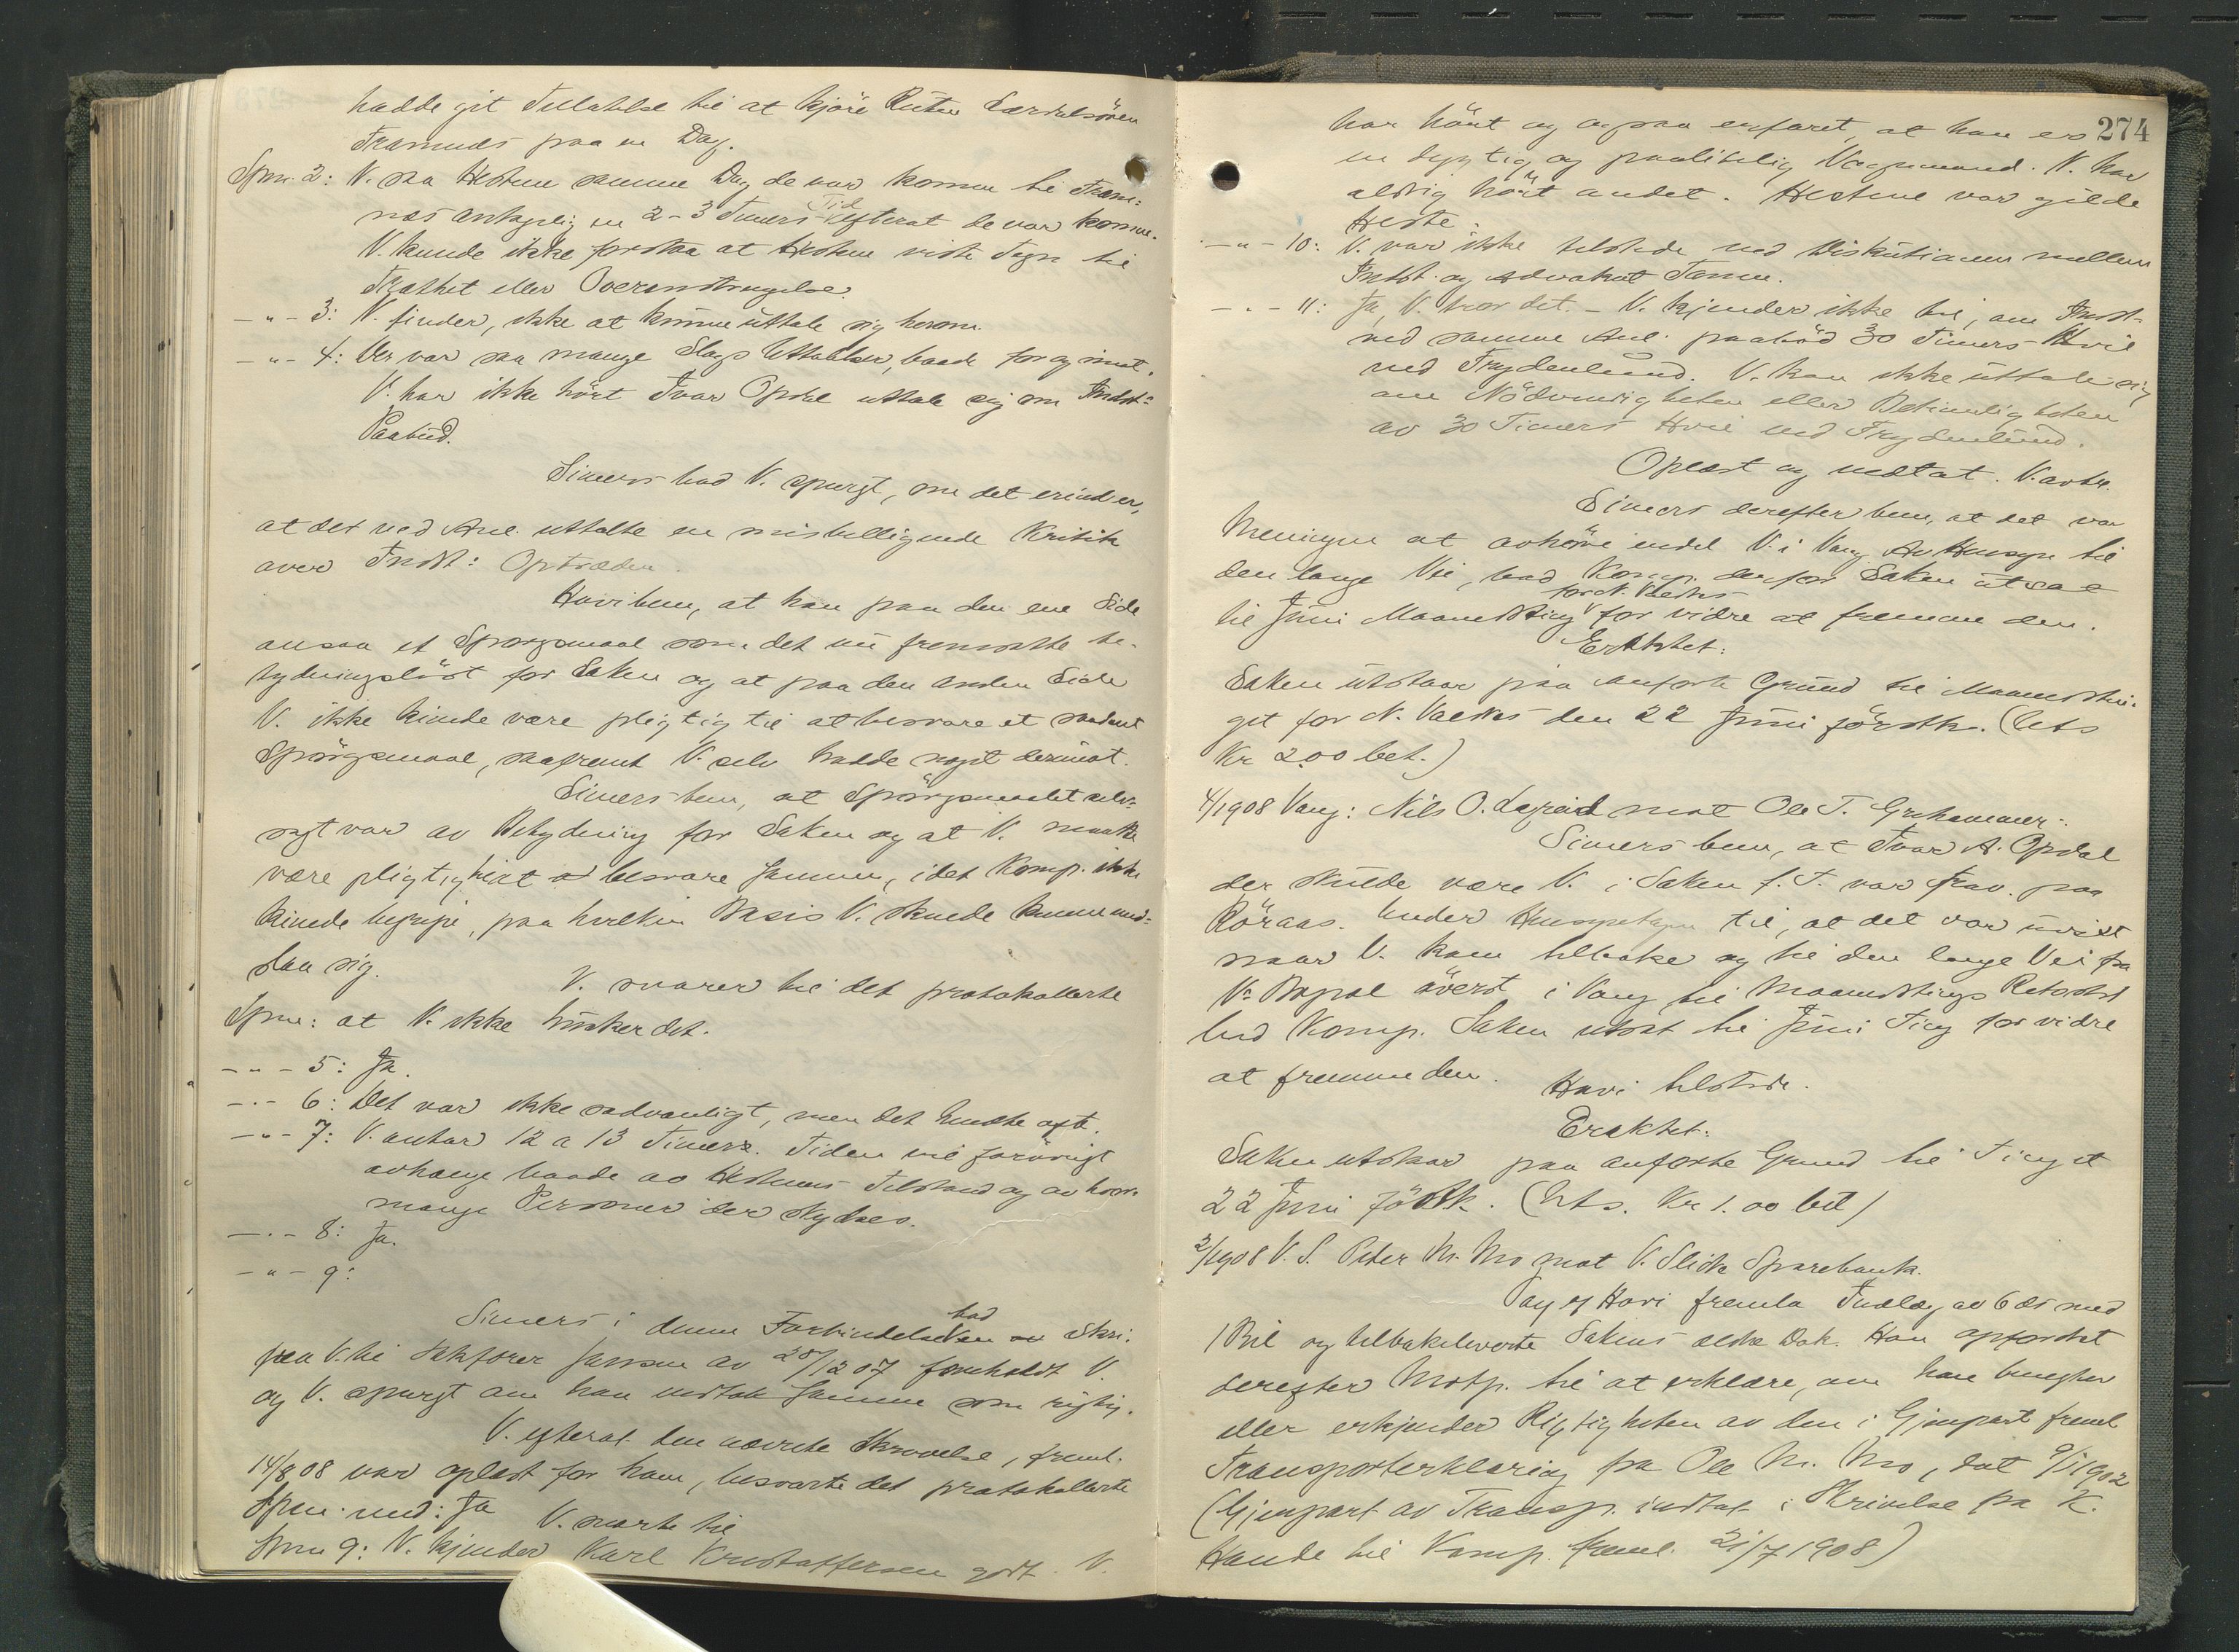 hadde git Tilladelse til at kjöre Ruten Lærdalsören
Framnæs paa en Dag.
Spm. 2: V. saa Hestene samme Dag de var komne til Fram:
næs antagelig en 2-3 Timers Tid efterat de var komne.
V. kunde ikke forstaa at Hestene viste Tegn til
Træthet eller Overanstrengelse.
-"- 3: V. finder, ikke at kunne uttale sig herom.
-"- 4: Der var saa mange Slags Uttalelser, baade for og imot.
V. har ikke hört Ivar Opdal uttale sig om Indst:
Paabud.
Simers bad V. spurgt, om det erindres,
at der ved Anl. uttaltes en misbilligende Kritik
over Indst: Optræden.
Havi bem, at han paa den ene Side
ansaa et Spörgsmaal som det nu fremsatte be-
tydningslöst for Saken og at paa den anden Side
V. ikke kunde være pligtig til at besvare et saadant
Spörgsmaal, saafremt V. selv hadde noget derimot.
Simers bem, at Spörgsmaalet selv-
sagt var av Betydning for Saken og at V. maatte
være pligtig til at besvare samme, idet Komp. ikke
kunde begripe, paa hvilken Basis V. skulde kunne und-
slaa sig.
V. svarer til det protokollerte
Spm: at V. ikke husker det.
-"- 5: Ja.
-"- 6: Det var ikke sedvanligt, men det hendte ofte.
-"- 7: V. antar 12 a 13 Timer. Tiden vil forövrigt
avhænge baade av Hestenes Tilstand og av hvor
mange Personer der skydses.
-"- 8: Ja.
-"- 9:
Simers i denne Forbindelse bad en av Skri.
fra V. til Sakförer Jansen av 28/12 07 foreholdt V.
og V. spurgt om han vedtok samme som rigtig.
V. efterat den nævnte Skrivelse, freml.
14/8 08 var oplæst for ham, besvarte det protokollerte
Spm. med: Ja V. svarte til
Spm 9: V. kjender Karl Kristoffersen godt. V.
274
har hört og ogsaa erfaret, at han er
en dygtig og paalitelig Vognmand. V. har
aldrig hört andet. Hestene var gilde
Heste.
-"- 10: V. var ikke tilstede ved Diskutionen mellem
Indst. og Advokat Tanm.
-"- 11: Ja, V. tror det. - V. kjender ikke til, om Indst-
ved samme Anl. paabød 30 Timers Hvil
ved Frydenlund. V. kan ikke uttale sig
om Nödvendigheten eller Betimeligheten
av 30 Timers Hvil ved Frydenlund.
Oplæst og vedtat. V. avtr.
Simers derefter bem, at det var
Meningen at avhöre endel V. i Vang. Av Hensyn til
den lange Vei, bad Komp. derfor Saken utsat
til Juni Maanedsting for N. Valdres for vidre at fremme den.
Eraktet:
Saken utstaar paa anförte Grund til Maanedstin-
get for N. Valdres den 22 Juni förstk. (Uts
Kr 2.00 bet.)
4/1908 Vang: Nils O. Legreid mot Ole T. Grihammer:
Simers bem, at Ivar A. Opdal
der skulde være V. i Saken f. T. var frav. paa
Röraas. Under Hensyntagen til, at det var uvist
naar V. kom tilbake og til den lange Vei fra
V: Bopæl överst i Vang til Maanedstings Retssted
bad Komp. Saken utsat til Juni Ting for vidre
at fremme den. Havi tilstede.
Eraktet:
Saken utstaar paa anförte Grund til Tinget
22 Juni förstk. (Uts. Kr 1.00 bet)
3/1908 V. S. Peter N. Mo mot V. Slidre Sparebank.
Sagf Havi fremla Indlæg av 6 ds med
1 Bil og tilbakeleverte Sakens ældre Dok. Han opfordret
derefter Motp. til at erklære, om han benegter
eller erkjender Rigtigheten av den i Gjenpart freml
Transporterklæring fra Ole N. Mo, dat 9/1 1902
(Gjenpart av Transp. indtat i Skrivelse fra K.
Haude til Komp. freml. 21/7 1908)